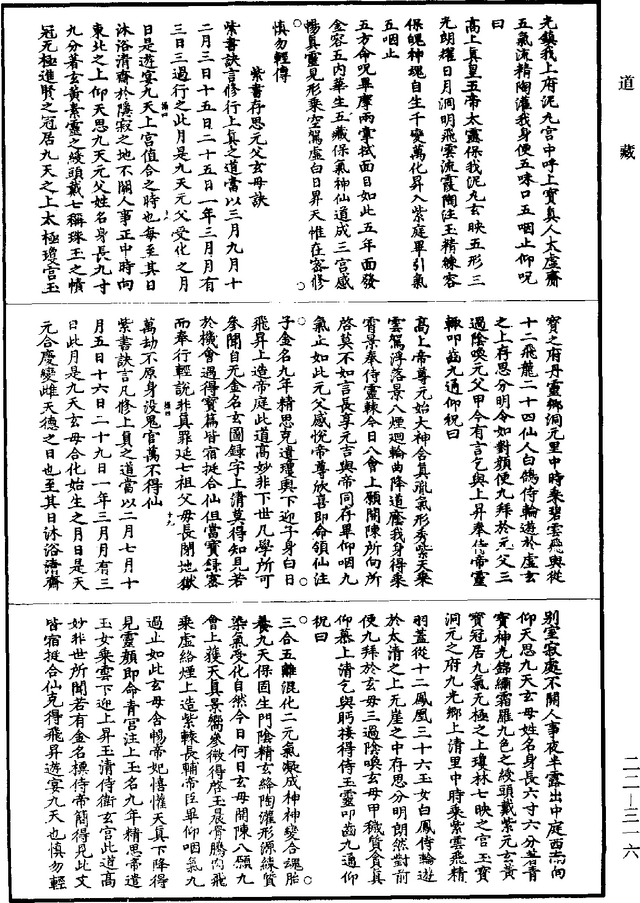 道藏
光鎮我上府泥九宮中呼上寶真人太虛齋
五氣流精陶灌我身便五味口五咽止仰呪
曰
高上真皇五帝太靈保我泥九玄映五形三
元朗耀日月洞明飛雲流霞陶注玉精練容
保魄神魂自生千變萬化昇入紫庭畢引氣
五咽止
五方命呪畢摩兩掌拭面目如此五年面發
金容五內華生五藏保氣神仙道成三宮感
暢真靈見形乘空駕虛白日昇天惟在密修
慎勿輕傳
紫書存思元父玄母訣
紫書訣言修行上真之道當以三月九月十
二月三日十五日二十五日一年三月月有
三日三過行之此月是九天元父受化之月
日是遊宴九天上宮值合之時也每至其日
沐浴清齋於隱寂之地不關人事正中時向
東北之上仰天思九天元父姓名身長九寸
九分著玄黃素靈之綬頭戴七稱珠玉之幘
冠元極進賢之冠居九天之上太極瓊宮玉
寶之府丹靈鄉洞元里中時乘碧雲飛輿從
十二飛龍二十四仙人白鴿侍輪遊於虛玄
之上存思分明令如對顏便九拜於元父三
過陰喚元父甲今有言乞與上昇奉侍帝靈
輙叩齒九通仰祝曰
高上帝尊元始大神含真胤氣形秀紫天乘
雲駕浮落景八煙迴輪曲降道廕我身得乘
霄景奉侍靈軿今日八會上願開陳所向所
啓莫不如言長享元吉與帝同存畢仰咽九
氣止如此元父感悅帝尊欣喜即命領仙注
子金名九年精思克遣瓊輿下迎子身白日
飛昇上造帝庭此道高妙非下世凡學所可
參聞自无金名玄圖錄字上清莫得知見若
於機會遇得寶篇皆宿挺合仙但當寶錄密
而奉行輕說非真罪延七祖父母長閉地獄
萬劫不原身沒鬼官萬不得仙
紫書訣言凡修上真之道當以二月七月十
月五日十六日二十九日一年三月月有三
日此月是九天玄母合化始生之月日是天
元合慶變雌天德之日也至其日沐浴清齋
別室寂處不關人事夜半露出中庭西南向
仰天思九天玄母姓名身長六寸六分著青
寶神光錦繡霜羅九色之綬頭戴紫元玄黃
寶冠居九氣无極之上瓊林七映之宮玉寶
洞元之府九光鄉上清里中時乘紫雲飛精
羽蓋從十二鳳凰三十六玉女白鳳侍輪遊
於太清之上无崖之中存思分明朗然對前
便九拜於玄母三過陰喚玄母甲穢質貪真
仰慕上清乞與時接得侍玉靈叩齒九通仰
祝曰
三合五離混化二元氣凝成神神變合魂胎
養九天保固生門陰精玄絳陶灌形源練質
染氣受化自然今日何日玄母開陳八願九
會上獲天真景嚮參微得啓玉晨骨騰肉飛
乘虛絡煙上造紫軿長輔帝臣畢仰咽氣九
過止如此玄母含暢帝妃憘懽天真下降得
見靈顏即命青宮注上玉名九年精思帝遣
玉女乘雲下迎上昇玉清侍衛玄宮此道高
妙非世所聞若有金名標侍帝簡得見此文
皆宿挺合仙克得飛昇遊宴九天也慎勿輕
二二—三一六